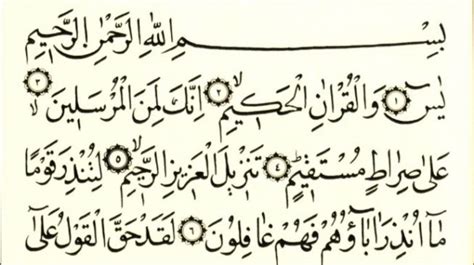 بِسْمِ اللّٰهِ الرَّحْمٰنِ الرَّحٖيمِ
يٰسٓ ﴿١﴾ وَالْقُرْاٰنِ الْحَكٖيمِۙ ﴿٢﴾ اِنَّكَ لَمِنَ الْمُرْسَلٖينَۙ ﴿٣﴾
عَلٰى صِرَاطٍ مُسْتَقٖيمٍۜ ﴿٤﴾ تَنْزٖيلَ الْعَزٖيزِ الرَّحٖيمِۙ ﴿٥﴾ لِتُنْذِرَ قَوْمًا
مَٓا اُنْذِرَ اٰبَٓاؤُ۬هُمْ فَهُمْ غَافِلُونَ ﴿٦﴾ لَقَدْ حَقَّ الْقَوْلُ عَلٰٓى